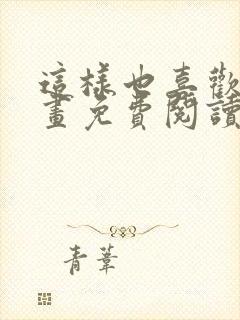 這樣也喜歡
畫免費閱讀
青葦